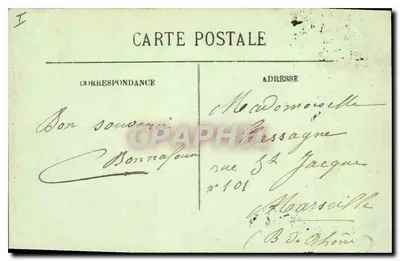 I
CARTE POSTALE
CORRESPONDANCE
ADRESSE
Bon souvenir
Bonnafoux
Mademoiselle
Massagne
rue St Jacques
n° 101
Marseille
(B. du Rhône)